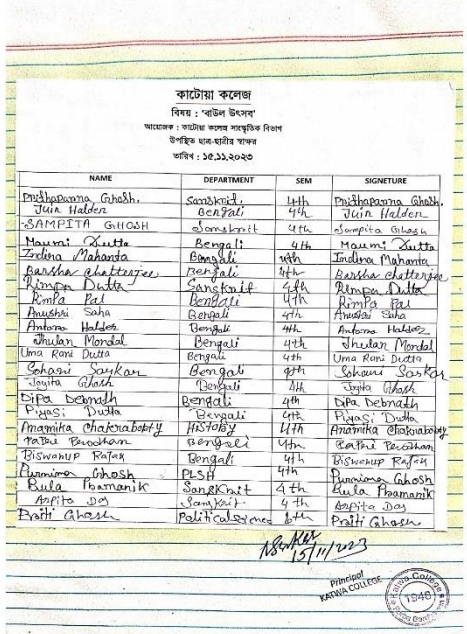 কাটোয়া কলেজ
বিষয় : 'বাউল উৎসব'
আয়োজক : কাটোয়া কলেজ সাংস্কৃতিক বিভাগ
উপস্থিত ছাত্র-ছাত্রীর স্বাক্ষর
তারিখ : ১৫.১১.২০২৩
NAME DEPARTMENT SEM SIGNETURE
Ghosh. Sanskrit. 4th Ghosh.
Juin Halder Bengali 4th Juin Halder
SAMPITA GHOSH Sanskrit 4th Sampita Ghosh
Moumi Dutta Bengali 4th Moumi Dutta
Indira Mahanta Bengali 4th Indira Mahanta
Barsha Chatterjee Bengali 4th Barsha Chatterjee
Rimpa Dutta Sangknit 4th Rimpa Dutta
Rimpa Pal Bengali 4th Rimpa Pal
Anushri Saha Bengali 4th Anushri Saha
Antara Halder Bengali 4th Antara Halder
Jhulan Mondal Bengali 4th Jhulan Mondal
Uma Rani Dutta Bengali 4th Uma Rani Dutta
Sohani Sarkar Bengali Sohani Sarkar
Joyita Ghosh Bengali 4th Joyita Ghosh
Dipa Debnath Bengali 4th Dipa Debnath
Piyasi Dutta Bengali 4th Piyasi Dutta
Anamika Chakraborty History 4th Anamika Chakraborty
Bengali 4th
Biswarup Bengali 4th Biswarup
Purnima Ghosh PLSH 4th Purnima Ghosh
Pramanik Sangknit 4th Pramanik
Arpita Das Sanskrit 4th Arpita Das
Priti Ghosh Political science 6th Priti Ghosh
15/11/2023
Principal
KATWA COLLEGE
Katwa College
1948